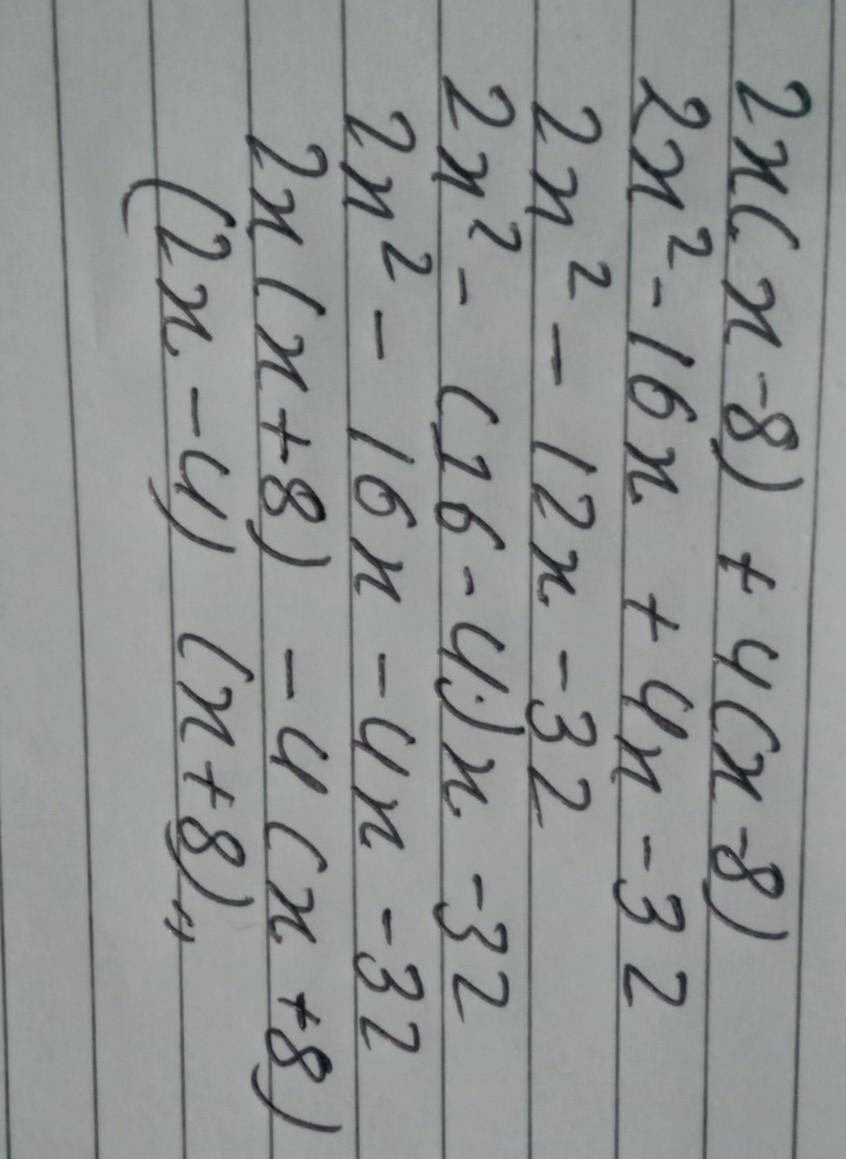 2x(x-8) + 4(x-8)
2x² - 16x + 4x - 32
2x² - 12x - 32
2x² - (16-4)x - 32
2x² - 16x - 4x - 32
2x(x+8) - 4(x+8)
(2x-4) (x+8)„